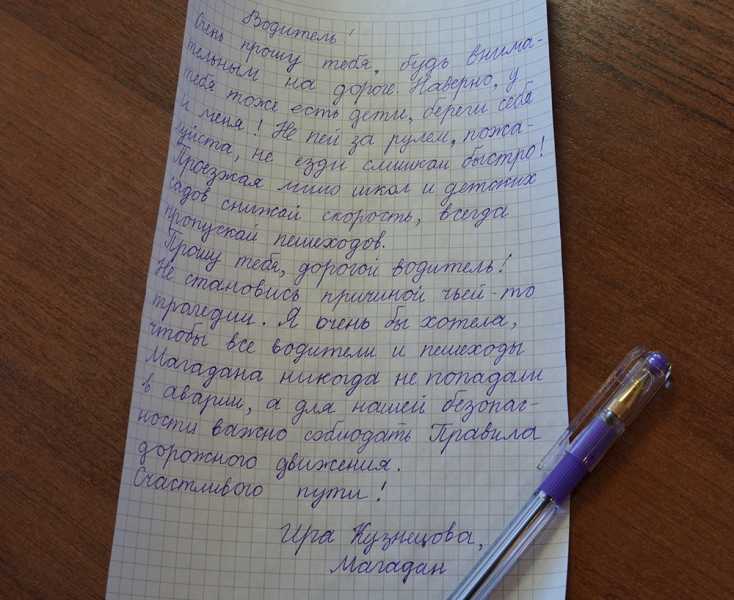 Водитель!
Очень прошу тебя, будь внима-
тельным на дороге. Наверно, у
тебя тоже есть дети, береги себя
и меня! Не пей за рулем, пожа-
луйста, не езди слишком быстро!
Проезжая мимо школ и детских
садов снижай скорость, всегда
пропускай пешеходов.
Прошу тебя, дорогой водитель!
Не становись причиной чьей-то
трагедии. Я очень бы хотела,
чтобы все водители и пешеходы
Магадана никогда не попадали
в аварии, а для нашей безопас-
ности важно соблюдать Правила
дорожного движения.
Счастливого пути!
Ира Кузнецова,
Магадан